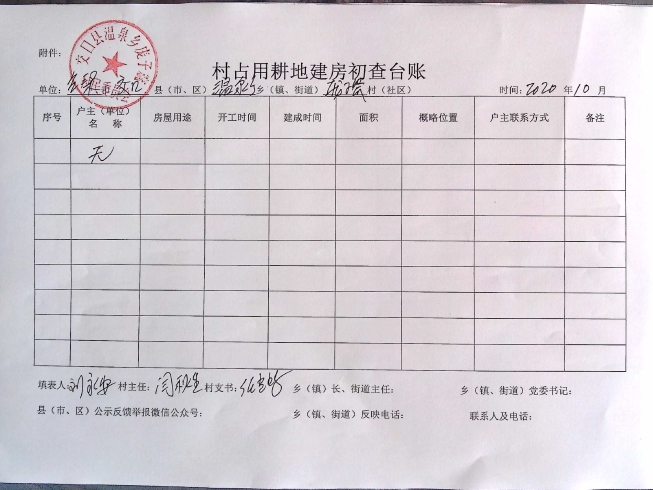 附件：
交口县温泉乡
村占用耕地建房初查台账
单位：吕梁市交口县（市、区）温泉乡乡（镇、街道）村（社区） 时间：2020年10月
序号 户主（单位）名称 房屋用途 开工时间 建成时间 面积 概略位置 户主联系方式 备注
无
填表人： 村主任： 村支书： 乡（镇）长、街道主任： 乡（镇、街道）党委书记：
县（市、区）公示反馈举报微信公众号： 乡（镇、街道）反映电话： 联系人及电话：